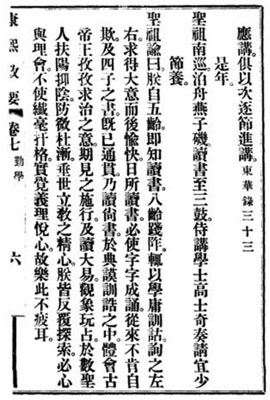 應講俱以次逐節進講。東華錄三十三
是年。
聖祖南巡泊舟燕子磯讀書至三鼓侍講學士高士奇奏請宜少
節養。
聖祖諭曰朕自五齡卽知讀書八齡踐阼輒以學庸訓詁詢之左
右求得大意而後愉快日所讀書必使字字成誦從來不肯自
欺及四子之書旣已通貫乃讀尙書於典謨訓誥之中體會古
帝王孜孜求治之意期見之施行及讀大易觀象玩占於數聖
人扶陽抑陰防微杜漸垂世立敎之精心朕皆反覆探索必心
與理會不使纖毫扞格實覺義理悅心故樂此不疲耳。
康熙政要 卷七 勤學 六